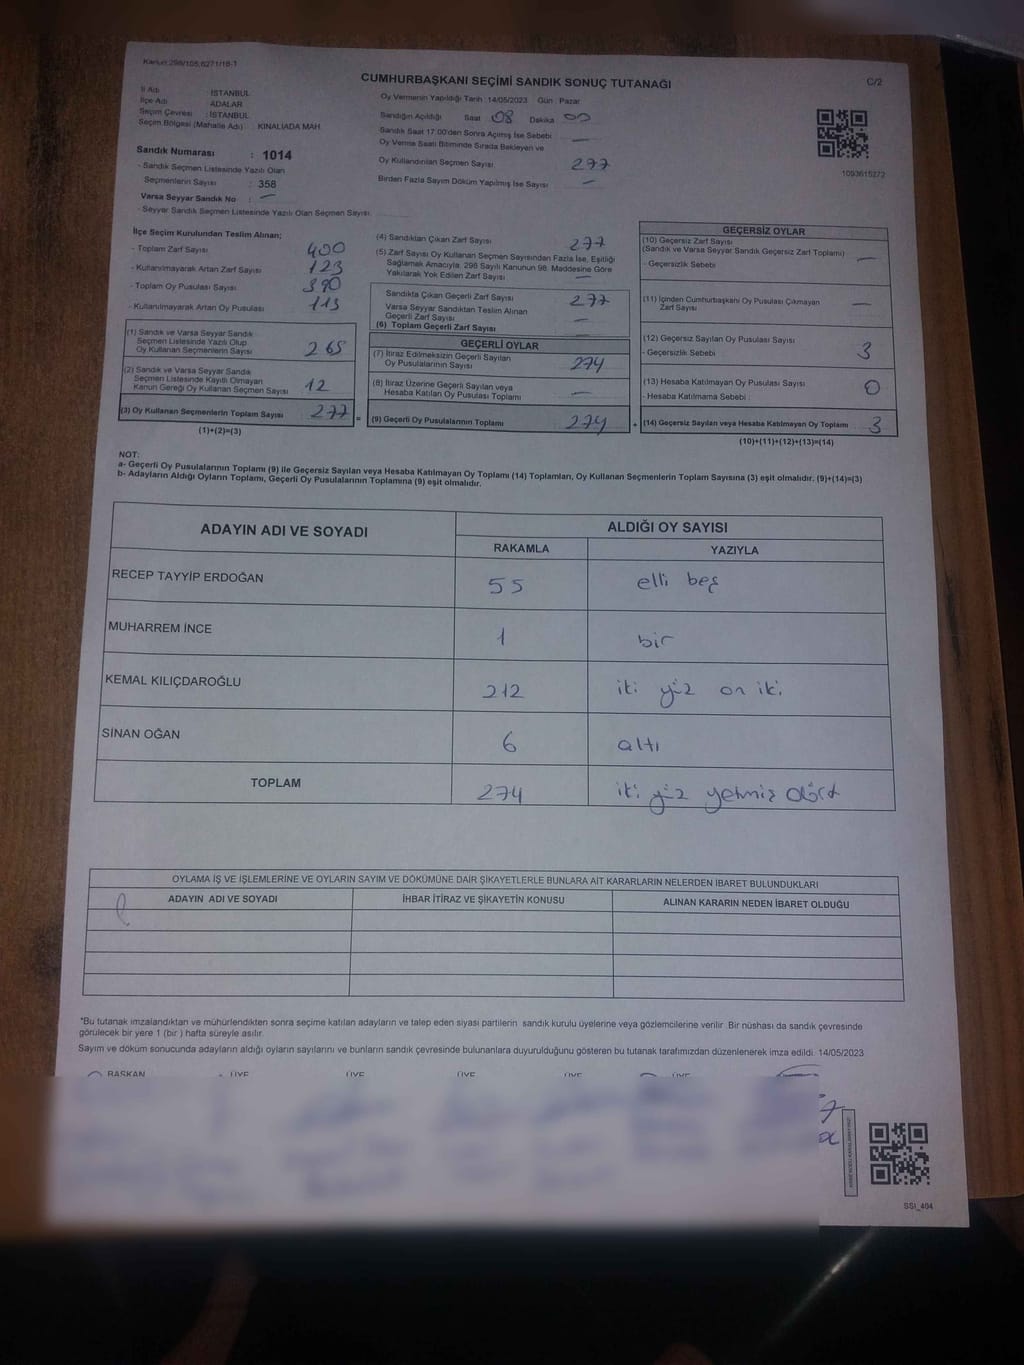 Kanun:298/105,6271/18-1
CUMHURBAŞKANI SEÇİMİ SANDIK SONUÇ TUTANAĞI
C/2
İl Adı : İSTANBUL
İlçe Adı : ADALAR
Seçim Çevresi : İSTANBUL
Seçim Bölgesi (Mahalle Adı) : KINALIADA MAH
Sandık Numarası : 1014
- Sandık Seçmen Listesinde Yazılı Olan
Seçmenlerin Sayısı : 358
Varsa Seyyar Sandık No : —
- Seyyar Sandık Seçmen Listesinde Yazılı Olan Seçmen Sayısı:
Oy Vermenin Yapıldığı Tarih : 14/05/2023 Gün : Pazar
Sandığın Açıldığı Saat 08 Dakika 00
Sandık Saat 17.00'den Sonra Açılmış İse Sebebi : —
Oy Verme Saati Bitiminde Sırada Bekleyen ve
Oy Kullandırılan Seçmen Sayısı 277
Birden Fazla Sayım Döküm Yapılmış İse Sayısı —
1093615272
İlçe Seçim Kurulundan Teslim Alınan;
- Toplam Zarf Sayısı 400
- Kullanılmayarak Artan Zarf Sayısı 123
- Toplam Oy Pusulası Sayısı 390
- Kullanılmayarak Artan Oy Pusulası 113
(1) Sandık ve Varsa Seyyar Sandık
Seçmen Listesinde Yazılı Olup
Oy Kullanan Seçmenlerin Sayısı 265
(2) Sandık ve Varsa Seyyar Sandık
Seçmen Listesinde Kayıtlı Olmayan
Kanun Gereği Oy Kullanan Seçmen Sayısı 12
(3) Oy Kullanan Seçmenlerin Toplam Sayısı 277
(1)+(2)=(3)
(4) Sandıktan Çıkan Zarf Sayısı 277
(5) Zarf Sayısı Oy Kullanan Seçmen Sayısından Fazla İse, Eşitliği
Sağlamak Amacıyla, 298 Sayılı Kanunun 98. Maddesine Göre
Yakılarak Yok Edilen Zarf Sayısı —
Sandıkta Çıkan Geçerli Zarf Sayısı 277
Varsa Seyyar Sandıktan Teslim Alınan
Geçerli Zarf Sayısı —
(6) Toplam Geçerli Zarf Sayısı —
GEÇERLİ OYLAR
(7) İtiraz Edilmeksizin Geçerli Sayılan
Oy Pusulalarının Sayısı 274
(8) İtiraz Üzerine Geçerli Sayılan veya
Hesaba Katılan Oy Pusulası Toplamı —
= (9) Geçerli Oy Pusulalarının Toplamı 274 +
GEÇERSİZ OYLAR
(10) Geçersiz Zarf Sayısı
(Sandık ve Varsa Seyyar Sandık Geçersiz Zarf Toplamı) —
- Geçersizlik Sebebi :
(11) İçinden Cumhurbaşkanı Oy Pusulası Çıkmayan
Zarf Sayısı —
(12) Geçersiz Sayılan Oy Pusulası Sayısı 3
- Geçersizlik Sebebi :
(13) Hesaba Katılmayan Oy Pusulası Sayısı 0
- Hesaba Katılmama Sebebi :
(14) Geçersiz Sayılan veya Hesaba Katılmayan Oy Toplamı 3
(10)+(11)+(12)+(13)=(14)
NOT:
a- Geçerli Oy Pusulalarının Toplamı (9) ile Geçersiz Sayılan veya Hesaba Katılmayan Oy Toplamı (14) Toplamları, Oy Kullanan Seçmenlerin Toplam Sayısına (3) eşit olmalıdır. (9)+(14)=(3)
b- Adayların Aldığı Oyların Toplamı, Geçerli Oy Pusulalarının Toplamına (9) eşit olmalıdır.
ADAYIN ADI VE SOYADI ALDIĞI OY SAYISI
RAKAMLA YAZIYLA
RECEP TAYYİP ERDOĞAN 55 elli beş
MUHARREM İNCE 1 bir
KEMAL KILIÇDAROĞLU 212 iki yüz on iki
SİNAN OĞAN 6 altı
TOPLAM 274 iki yüz yetmiş dört
OYLAMA İŞ VE İŞLEMLERİNE VE OYLARIN SAYIM VE DÖKÜMÜNE DAİR ŞİKAYETLERLE BUNLARA AİT KARARLARIN NELERDEN İBARET BULUNDUKLARI
ADAYIN ADI VE SOYADI İHBAR İTİRAZ VE ŞİKAYETİN KONUSU ALINAN KARARIN NEDEN İBARET OLDUĞU
*Bu tutanak imzalandıktan ve mühürlendikten sonra seçime katılan adayların ve talep eden siyasi partilerin sandık kurulu üyelerine veya gözlemcilerine verilir. Bir nüshası da sandık çevresinde
görülecek bir yere 1 (bir ) hafta süreyle asılır.
Sayım ve döküm sonucunda adayların aldığı oyların sayılarını ve bunların sandık çevresinde bulunanlara duyurulduğunu gösteren bu tutanak tarafımızdan düzenlenerek imza edildi. 14/05/2023
BAŞKAN ÜYE ÜYE ÜYE ÜYE ÜYE
SSI_404